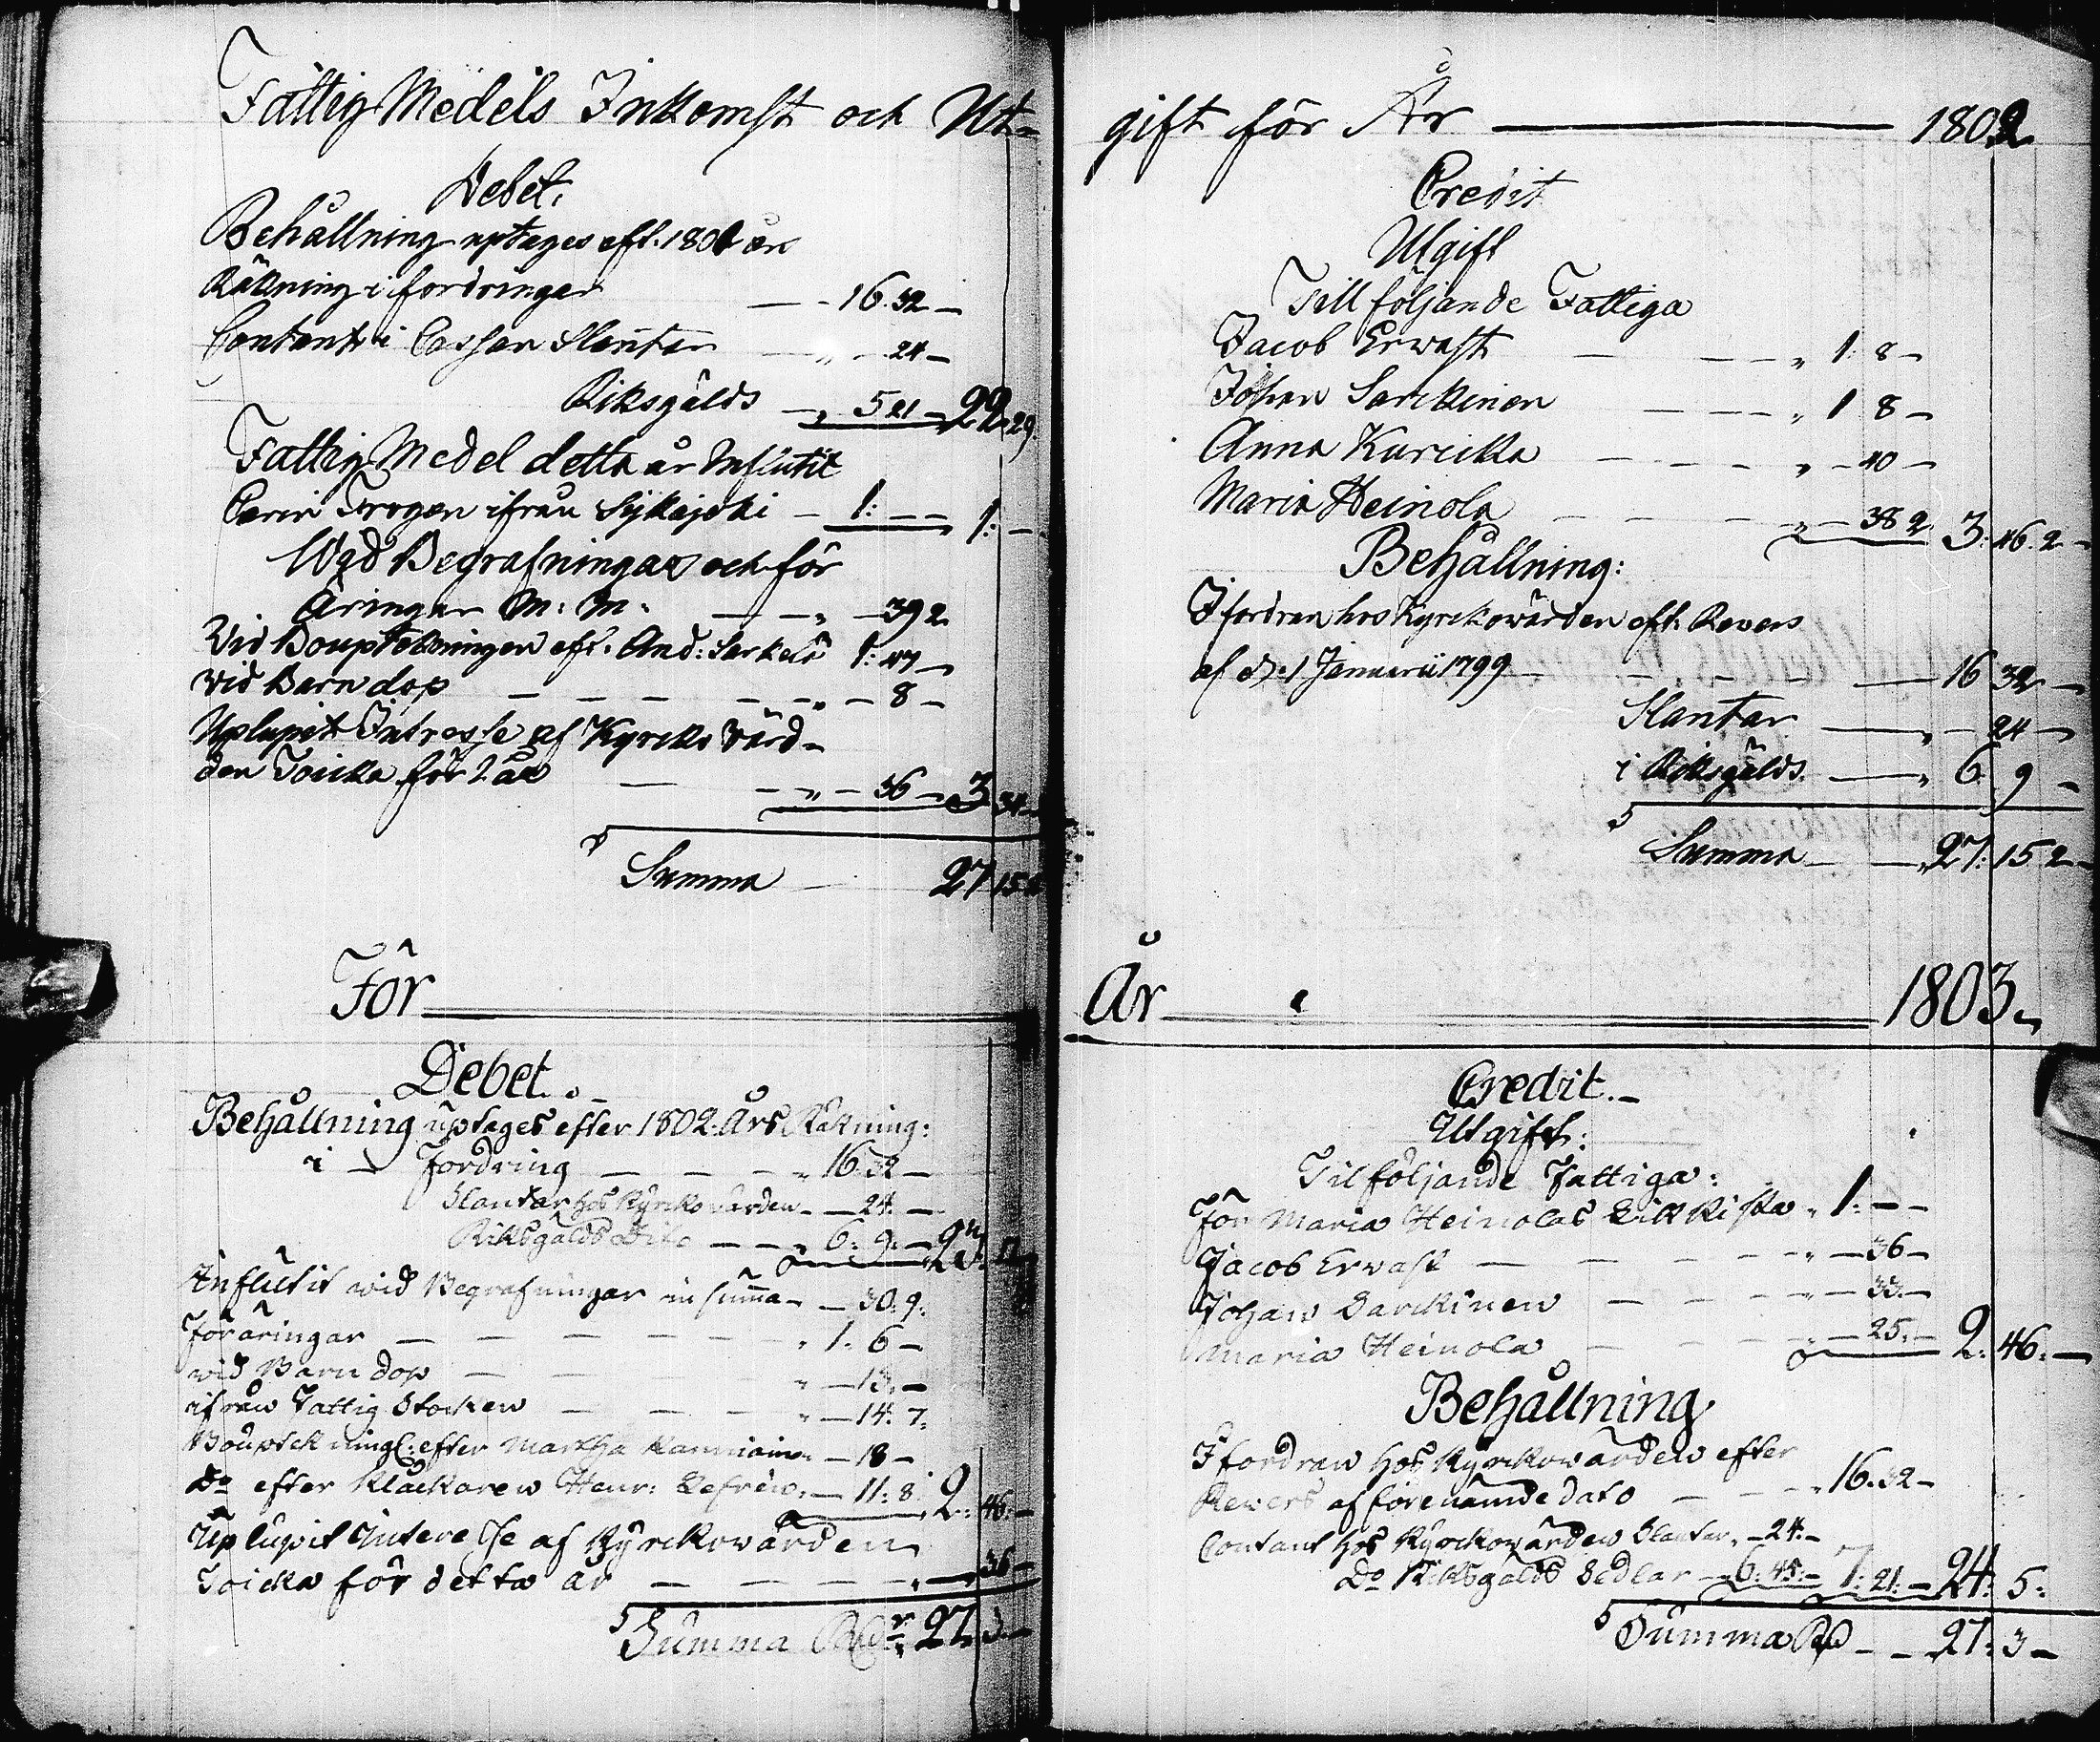 Fattig Medels Inkomst och Ut-
Debet.
Behållning uptages eft. 1801 års
Räkning i fordringar — - 16. 32 —
Contant i Cassan Slantar — „ - 24 —
Riksgälds — „ 5 21 — 22. 29.
Fattig Medel detta år Influtit
Carin Frogen ifrån Sijkajoki — 1: — — 1: —
Wid Begrafningar och för
äringar M: M. — — „ — 39 2
Vid Bouptekningen eft. And: Sarkelä 1: 47 —
vid Barn dop — — — — — „ — 8 —
Uplupit Intresse af Kyrcko värd-
den Toicka för 1 år — — „ — 36 — 3 34 —
Summa — 27 15 2
För
Debet. —
Behållning uptages efter 1802. Års Räkning:
i — Fordring — — — — „ 16. 32 —
Slantar hos Kyrcko värden — — 24. —
Riksgälds Dito — — „ 6: 9: — 23: 17
Influtit wid Begrafningar in summa — — 30: 9:
Föräringar — — — — — — „ 1. 6 —
wid Barn dop — — — — „ — 13. —
ifrån Fattig Stocken — — — „ — 14: 7:
Bouptekningl: efter Martha — 18 —
Do efter Klåckaren Henr: Lefrén. — 11: 8: 2: 46: —
Uplupit Interesse af Kyrckovärden
Toicka för detta år — — — — — „ — 36 —
Summa Rdr 27. 3. —
gift för År ——— 1802
Credit
Utgift
Till följande Fattiga
Jacob Erwast — — — „ 1: 8 —
Johan Sarckinen — — — „ 1 8 —
Anna Kuricka — — — — „ — 40 —
Maria Heinola — — — — „ — 38 2. 3: 46. 2 —
Behållning:
I fordran hos Kyrckovärden eft. Revers
af d. 1 Januarii 1799 — — — — — — 16 32 —
Slantar — „ — 24 —
i Riksgälds — „ 6 9 —
Summa — — „ 27: 15 2 —
År ——— 1803.
Credit. —
Utgift:
Til följande Fattiga:
För Maria Heinolas Likkista „ 1: — —
Jacob Ervast — — — — „ — 36 —
Johan Sarckinen — — — — „ — 33. —
Maria Heinola — — — — „ — 25. — 2: 46: —
Behållning
I fordran hos Kyrckovärden efter
Revers af förenämnde dato — — — „ 16. 32 —
Contant hos Kyrckovärden Slantar „ — 24: —
Do Riksgälds Sedlar — 6: 45: — 7: 21: — 24: 5:
Summa Rd — — 27: 3 —